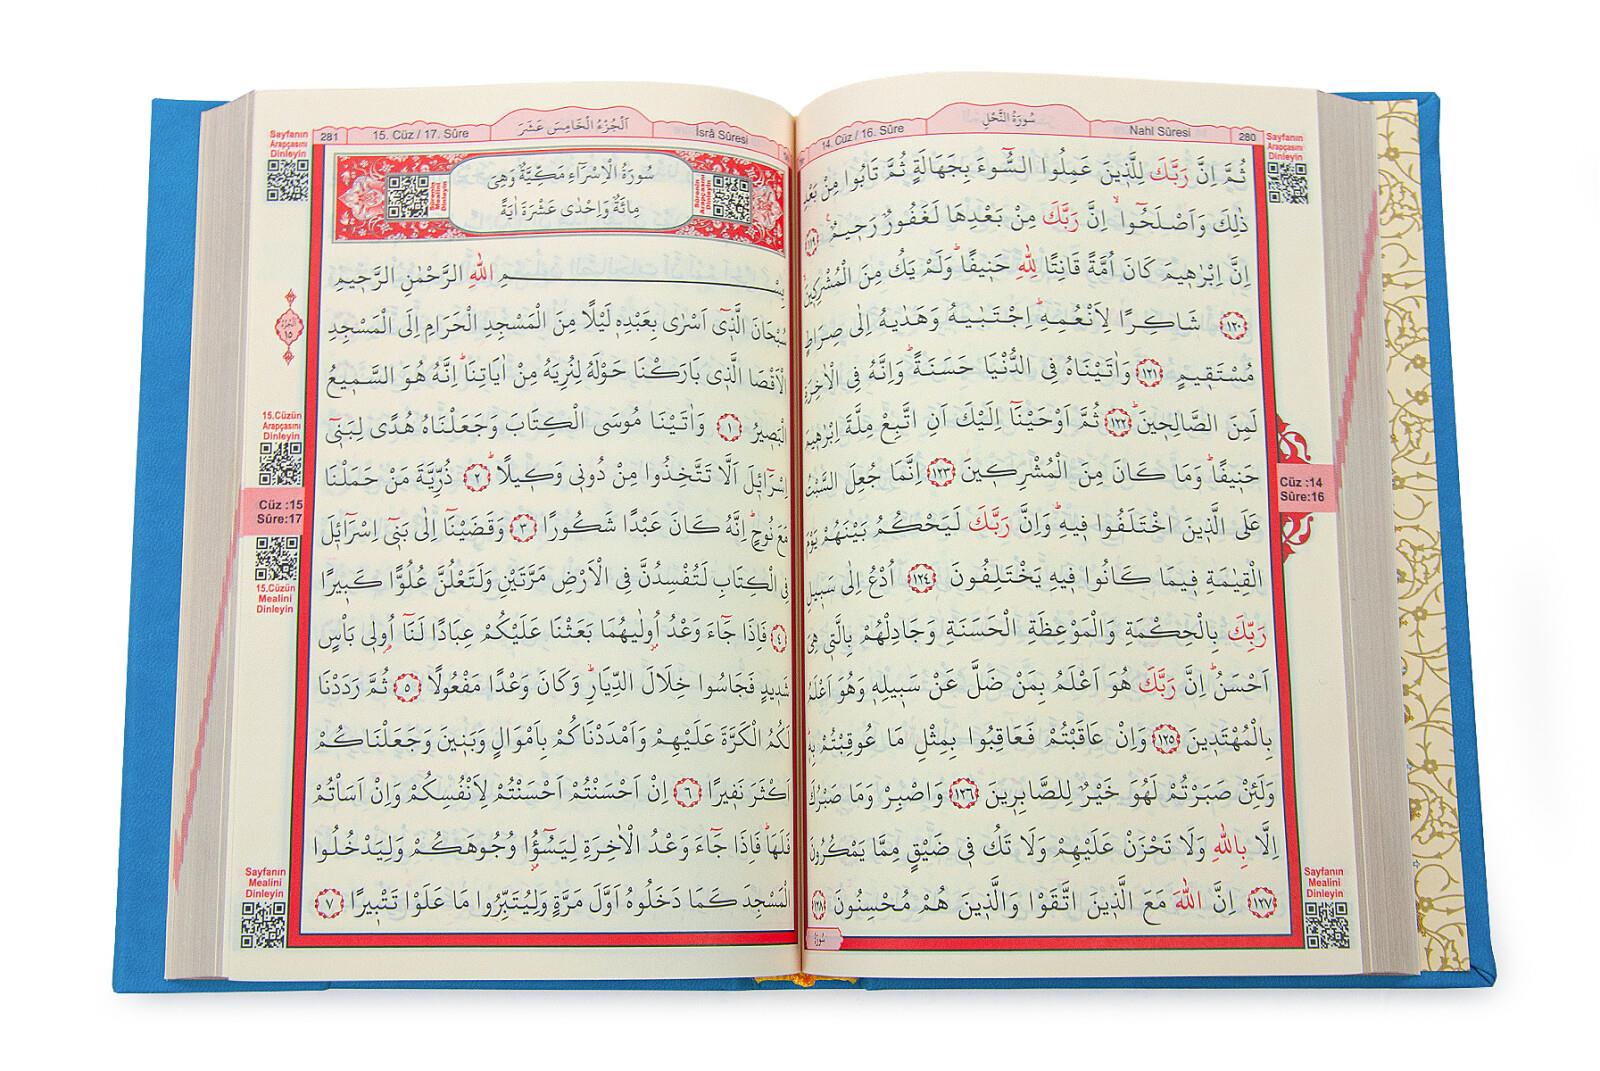 280
Nahl Sûresi
سُورَةُ النَّحْلِ
14. Cüz / 16. Sûre
Sayfanın
Arapçasını
Dinleyin
ثُمَّ اِنَّ رَبَّكَ لِلَّذ۪ينَ عَمِلُوا السُّٓوءَ بِجَهَالَةٍ ثُمَّ تَابُوا مِنْ بَعْدِ
ذٰلِكَ وَاَصْلَحُٓوا اِنَّ رَبَّكَ مِنْ بَعْدِهَا لَغَفُورٌ رَح۪يمٌ ﴿١١٩﴾
اِنَّ اِبْرٰه۪يمَ كَانَ اُمَّةً قَانِتًا لِلّٰهِ حَن۪يفًاۜ وَلَمْ يَكُ مِنَ الْمُشْرِك۪ينَ
﴿١٢٠﴾ شَاكِرًا لِاَنْعُمِهِۜ اِجْتَبٰيهُ وَهَدٰيهُ اِلٰى صِرَاطٍ
مُسْتَق۪يمٍ ﴿١٢١﴾ وَاٰتَيْنَاهُ فِي الدُّنْيَا حَسَنَةًۜ وَاِنَّهُ فِي الْاٰخِرَةِ
لَمِنَ الصَّالِح۪ينَۜ ﴿١٢٢﴾ ثُمَّ اَوْحَيْنَٓا اِلَيْكَ اَنِ اتَّبِعْ مِلَّةَ اِبْرٰه۪يمَ
حَن۪يفًاۜ وَمَا كَانَ مِنَ الْمُشْرِك۪ينَ ﴿١٢٣﴾ اِنَّمَا جُعِلَ السَّبْتُ
عَلَى الَّذ۪ينَ اخْتَلَفُوا ف۪يهِۜ وَاِنَّ رَبَّكَ لَيَحْكُمُ بَيْنَهُمْ يَوْمَ
الْقِيٰمَةِ ف۪يمَا كَانُوا ف۪يهِ يَخْتَلِفُونَ ﴿١٢٤﴾ اُدْعُ اِلٰى سَب۪يلِ
رَبِّكَ بِالْحِكْمَةِ وَالْمَوْعِظَةِ الْحَسَنَةِ وَجَادِلْهُمْ بِالَّت۪ي هِيَ
اَحْسَنُۜ اِنَّ رَبَّكَ هُوَ اَعْلَمُ بِمَنْ ضَلَّ عَنْ سَب۪يلِه۪ وَهُوَ اَعْلَمُ
بِالْمُهْتَد۪ينَ ﴿١٢٥﴾ وَاِنْ عَاقَبْتُمْ فَعَاقِبُوا بِمِثْلِ مَا عُوقِبْتُمْ بِه۪ۜ
وَلَئِنْ صَبَرْتُمْ لَهُوَ خَيْرٌ لِلصَّابِر۪ينَ ﴿١٢٦﴾ وَاصْبِرْ وَمَا صَبْرُكَ
اِلَّا بِاللّٰهِ وَلَا تَحْزَنْ عَلَيْهِمْ وَلَا تَكُ ف۪ي ضَيْقٍ مِمَّا يَمْكُرُونَ
﴿١٢٧﴾ اِنَّ اللّٰهَ مَعَ الَّذ۪ينَ اتَّقَوْا وَالَّذ۪ينَ هُمْ مُحْسِنُونَ ﴿١٢٨﴾
سُورَةُ
Cüz :14
Sûre:16
Sayfanın
Mealini
Dinleyin
İsrâ Sûresi
اَلْجُزْءُ الْخَامِسَ عَشَرَ
15. Cüz / 17. Sûre
281
Sayfanın
Arapçasını
Dinleyin
Sûrenin
Arapçasını
Dinleyin
سُورَةُ الْاِسْرَٓاءِ مَكِّيَّةٌ وَهِيَ
مِائَةٌ وَاِحْدٰى عَشْرَةَ اٰيَةً
Sûrenin
Mealini
Dinleyin
بِسْمِ اللّٰهِ الرَّحْمٰنِ الرَّح۪يمِ
سُبْحَانَ الَّذ۪ٓي اَسْرٰى بِعَبْدِه۪ لَيْلًا مِنَ الْمَسْجِدِ الْحَرَامِ اِلَى الْمَسْجِدِ
الْاَقْصَا الَّذ۪ي بَارَكْنَا حَوْلَهُ لِنُرِيَهُ مِنْ اٰيَاتِنَاۜ اِنَّهُ هُوَ السَّم۪يعُ
الْبَص۪يرُ ﴿١﴾ وَاٰتَيْنَا مُوسَى الْكِتَابَ وَجَعَلْنَاهُ هُدًى لِبَن۪ٓي
اِسْرَٓائ۪لَ اَلَّا تَتَّخِذُوا مِنْ دُون۪ي وَك۪يلًاۜ ﴿٢﴾ ذُرِّيَّةَ مَنْ حَمَلْنَا
مَعَ نُوحٍۜ اِنَّهُ كَانَ عَبْدًا شَكُورًا ﴿٣﴾ وَقَضَيْنَٓا اِلٰى بَن۪ٓي اِسْرَٓائ۪لَ
فِي الْكِتَابِ لَتُفْسِدُنَّ فِي الْاَرْضِ مَرَّتَيْنِ وَلَتَعْلُنَّ عُلُوًّا كَب۪يرًا
﴿٤﴾ فَاِذَا جَٓاءَ وَعْدُ اُو۫لٰيهُمَا بَعَثْنَا عَلَيْكُمْ عِبَادًا لَنَٓا اُو۬ل۪ي بَأْسٍ
شَد۪يدٍ فَجَاسُوا خِلَالَ الدِّيَارِۜ وَكَانَ وَعْدًا مَفْعُولًا ﴿٥﴾ ثُمَّ رَدَدْنَا
لَكُمُ الْكَرَّةَ عَلَيْهِمْ وَاَمْدَدْنَاكُمْ بِاَمْوَالٍ وَبَن۪ينَ وَجَعَلْنَاكُمْ
اَكْثَرَ نَف۪يرًا ﴿٦﴾ اِنْ اَحْسَنْتُمْ اَحْسَنْتُمْ لِاَنْفُسِكُمْ وَاِنْ اَسَأْتُمْ
فَلَهَاۜ فَاِذَا جَٓاءَ وَعْدُ الْاٰخِرَةِ لِيَسُٓؤُ۫ا وُجُوهَكُمْ وَلِيَدْخُلُوا
الْمَسْجِدَ كَمَا دَخَلُوهُ اَوَّلَ مَرَّةٍ وَلِيُتَبِّرُوا مَا عَلَوْا تَتْب۪يرًا ﴿٧﴾
اَلْجُزْءُ
١٥
15.Cüzün
Arapçasını
Dinleyin
Cüz :15
Sûre:17
15.Cüzün
Mealini
Dinleyin
Sayfanın
Mealini
Dinleyin